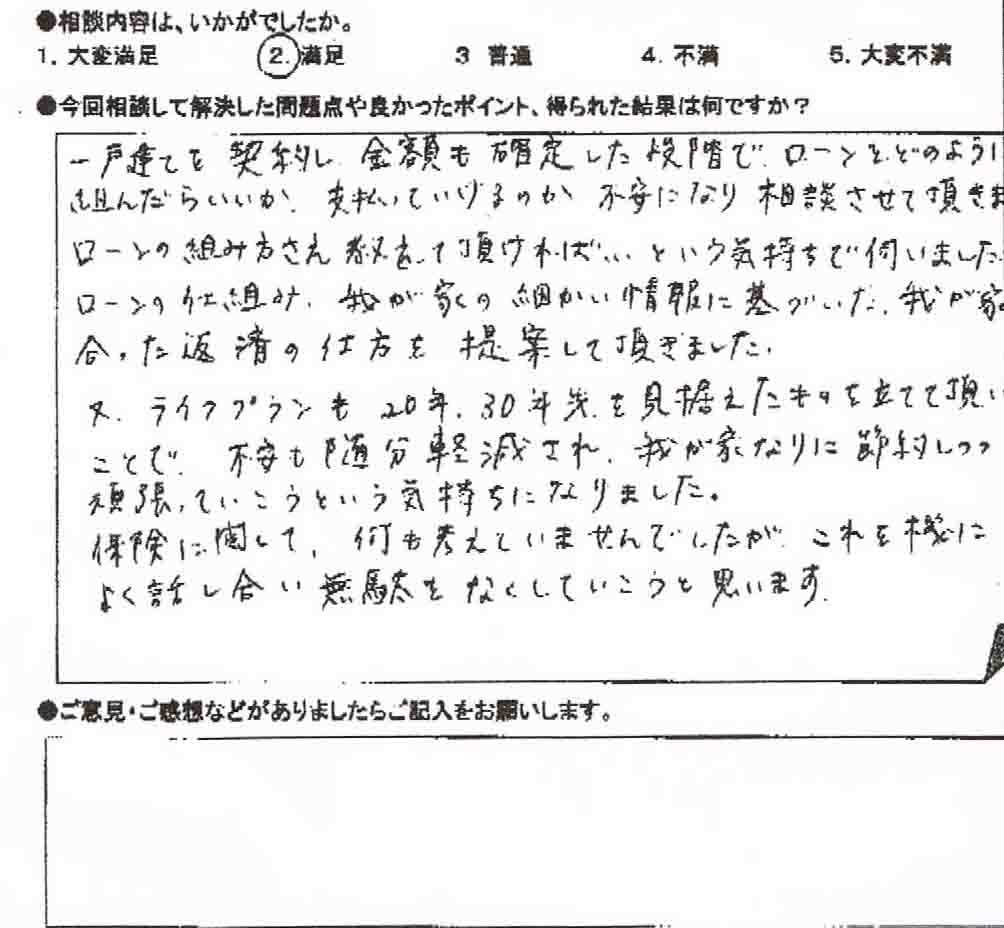 ●相談内容は、いかがでしたか。
1. 大変満足 2. 満足 3 普通 4. 不満 5. 大変不満
●今回相談して解決した問題点や良かったポイント、得られた結果は何ですか？
一戸建てを契約し、金額も確定した段階で、ローンをどのように
組んだらいいか、支払っていけるのか 不安になり 相談させて頂きま
ローンの組み方さえ教えて頂ければいい という気持ちで伺いました。
ローンの仕組み、我が家の細かい情報に基づいた、我が家
合った返済の仕方を提案して頂きました。
又、ライフプランも20年、30年先を見据えたものを立てて頂い
ことで、不安も随分軽減され、我が家なりに節約しつつ
頑張っていこうという気持ちになりました。
保険に関して、何も考えていませんでしたが、これを機に
よく話し合い無駄をなくしていこうと思います。
●ご意見・ご感想などがありましたらご記入をお願いします。